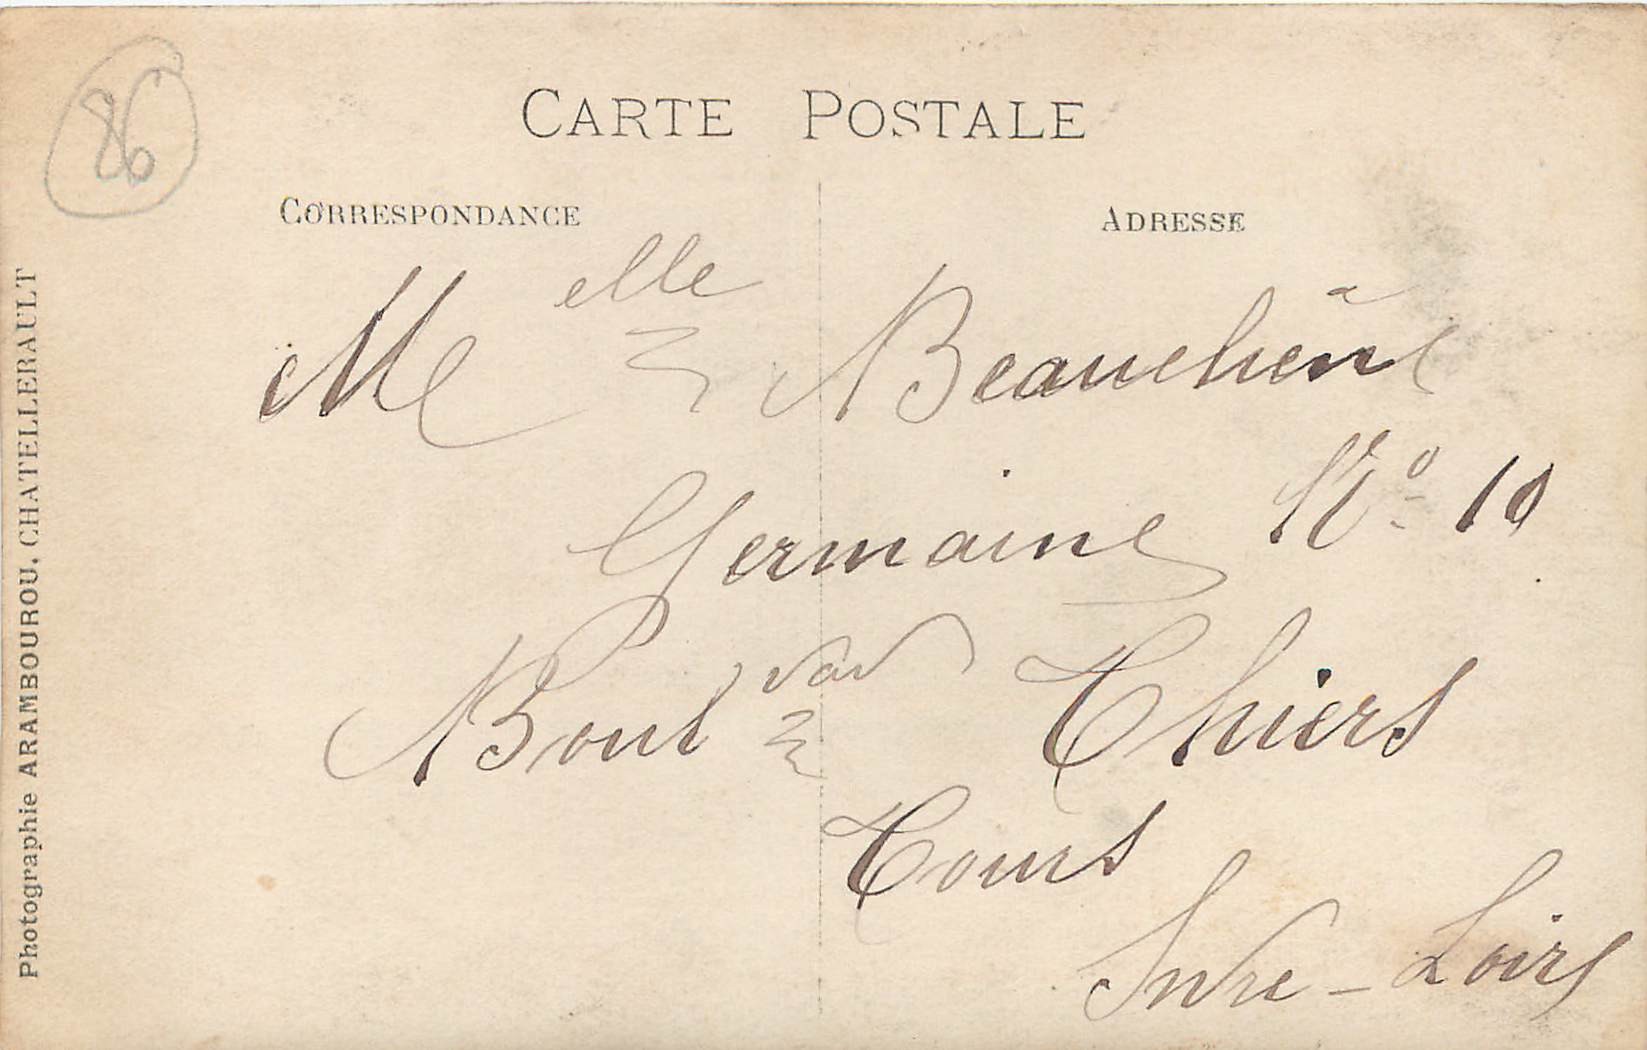 86
CARTE POSTALE
CORRESPONDANCE
ADRESSE
Melle Beauchêne
Germaine No 10
Boulvard Thiers
Tours
Indre-Loire
Photographie ARAMBOUROU, CHATELLERAULT